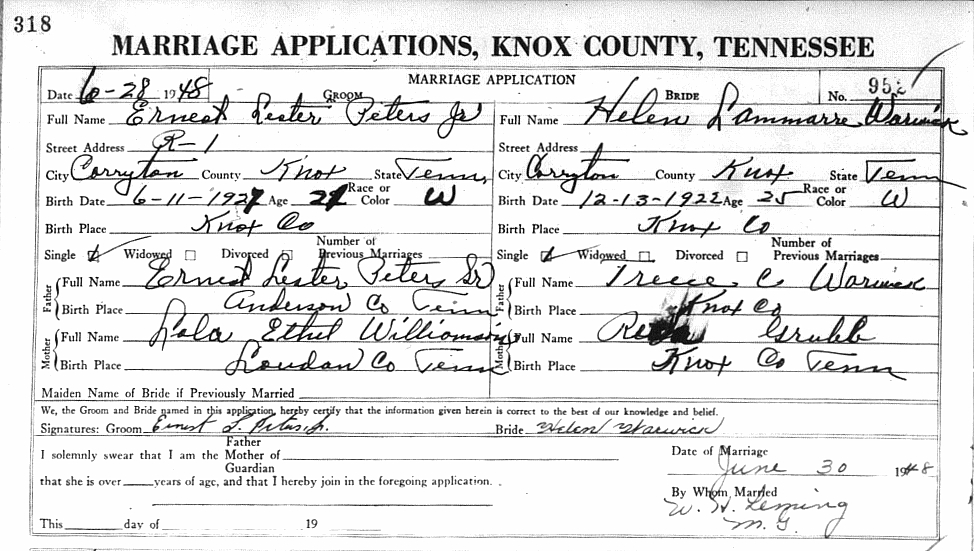 318
MARRIAGE APPLICATIONS, KNOX COUNTY, TENNESSEE
MARRIAGE APPLICATION
Date 6-28 1948 GROOM BRIDE No. 952
Full Name Ernest Lester Peters Jr Full Name Helen Lammarre Warwick
Street Address R-1 Street Address
City Corryton County Knox State Tenn. City Corryton County Knox State Tenn
Birth Date 6-11-1927 Age 21 Race or Color W Birth Date 12-13-1922 Age 25 Race or Color W
Birth Place Knox Co Birth Place Knox Co
Single Widowed Divorced Number of Previous Marriages Single Widowed Divorced Number of Previous Marriages
Father Full Name Ernest Lester Peters Sr Father Full Name Treece C Warwick
Birth Place Anderson Co Tenn Birth Place Knox Co
Mother Full Name Lola Ethel Williamson Mother Full Name Grubb
Birth Place Loudon Co Tenn Birth Place Knox Co Tenn
Maiden Name of Bride if Previously Married
We, the Groom and Bride named in this application, hereby certify that the information given herein is correct to the best of our knowledge and belief.
Signatures: Groom Ernest L. Peters, Jr. Bride Helen Warwick
Father
I solemnly swear that I am the Mother of
Guardian
that she is over years of age, and that I hereby join in the foregoing application.
This day of 19
Date of Marriage
June 30 1948
By Whom Married
W. H. Leming
M. G.